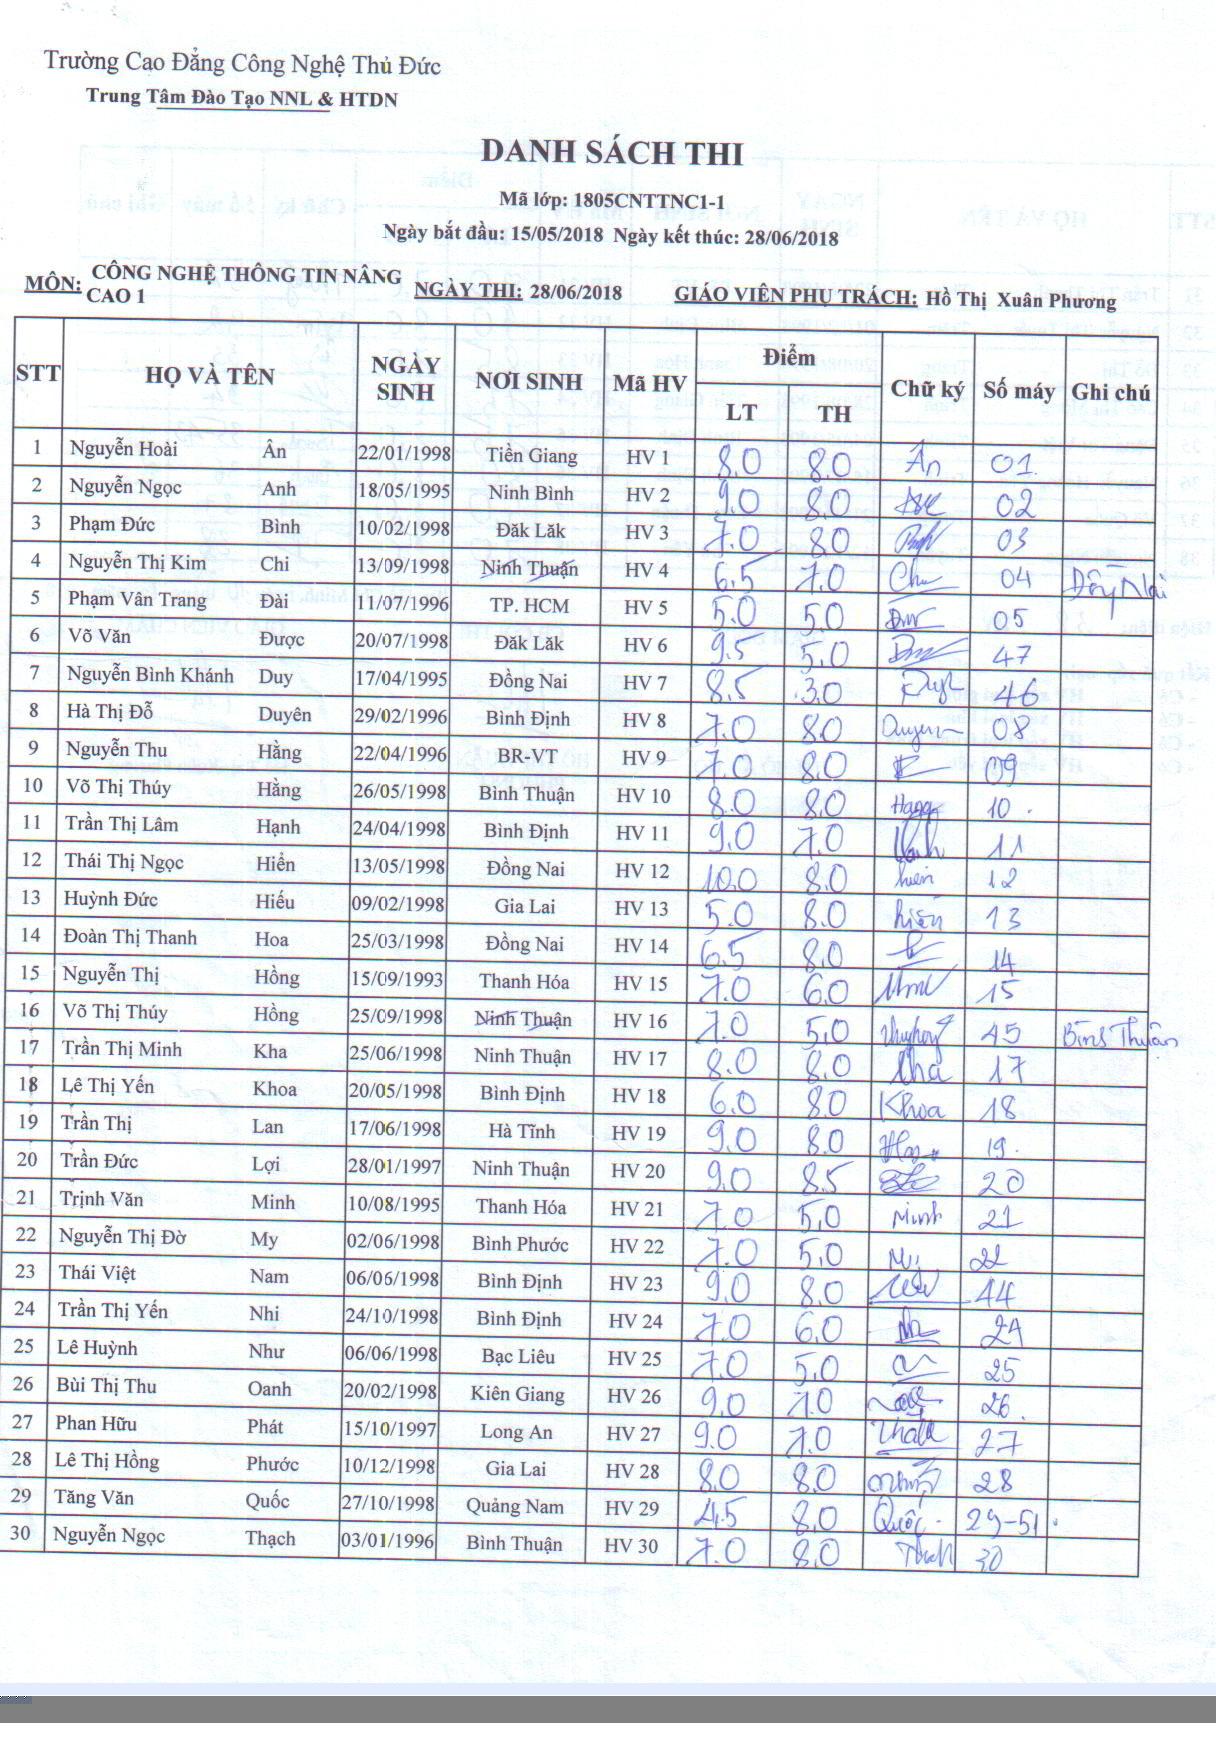 Trường Cao Đẳng Công Nghệ Thủ Đức
Trung Tâm Đào Tạo NNL & HTDN
DANH SÁCH THI
Mã lớp: 1805CNTTNC1-1
Ngày bắt đầu: 15/05/2018 Ngày kết thúc: 28/06/2018
MÔN: CÔNG NGHỆ THÔNG TIN NÂNG CAO 1 NGÀY THI: 28/06/2018 GIÁO VIÊN PHỤ TRÁCH: Hồ Thị Xuân Phương
STT HỌ VÀ TÊN NGÀY SINH NƠI SINH Mã HV Điểm Chữ ký Số máy Ghi chú
LT TH
1 Nguyễn Hoài Ân 22/01/1998 Tiền Giang HV 1 8.0 8.0 Ân 01
2 Nguyễn Ngọc Anh 18/05/1995 Ninh Bình HV 2 9.0 8.0 02
3 Phạm Đức Bình 10/02/1998 Đăk Lăk HV 3 7.0 8.0 03
4 Nguyễn Thị Kim Chi 13/09/1998 Ninh Thuận HV 4 6.5 7.0 04 Đồng Nai
5 Phạm Vân Trang Đài 11/07/1996 TP. HCM HV 5 5.0 5.0 05
6 Võ Văn Được 20/07/1998 Đăk Lăk HV 6 9.5 5.0 47
7 Nguyễn Bình Khánh Duy 17/04/1995 Đồng Nai HV 7 8.5 3.0 46
8 Hà Thị Đỗ Duyên 29/02/1996 Bình Định HV 8 7.0 8.0 Duyên 08
9 Nguyễn Thu Hằng 22/04/1996 BR-VT HV 9 7.0 8.0 09
10 Võ Thị Thúy Hằng 26/05/1998 Bình Thuận HV 10 8.0 8.0 10
11 Trần Thị Lâm Hạnh 24/04/1998 Bình Định HV 11 9.0 7.0 11
12 Thái Thị Ngọc Hiển 13/05/1998 Đồng Nai HV 12 10.0 8.0 hiển 12
13 Huỳnh Đức Hiếu 09/02/1998 Gia Lai HV 13 5.0 8.0 13
14 Đoàn Thị Thanh Hoa 25/03/1998 Đồng Nai HV 14 6.5 8.0 14
15 Nguyễn Thị Hồng 15/09/1993 Thanh Hóa HV 15 7.0 6.0 15
16 Võ Thị Thúy Hồng 25/09/1998 Ninh Thuận HV 16 7.0 5.0 45 Bình Thuận
17 Trần Thị Minh Kha 25/06/1998 Ninh Thuận HV 17 8.0 8.0 Kha 17
18 Lê Thị Yến Khoa 20/05/1998 Bình Định HV 18 6.0 8.0 Khoa 18
19 Trần Thị Lan 17/06/1998 Hà Tĩnh HV 19 9.0 8.0 19
20 Trần Đức Lợi 28/01/1997 Ninh Thuận HV 20 9.0 8.5 20
21 Trịnh Văn Minh 10/08/1995 Thanh Hóa HV 21 7.0 5.0 Minh 21
22 Nguyễn Thị Đờ My 02/06/1998 Bình Phước HV 22 7.0 5.0 22
23 Thái Việt Nam 06/06/1998 Bình Định HV 23 9.0 8.0 44
24 Trần Thị Yến Nhi 24/10/1998 Bình Định HV 24 7.0 6.0 24
25 Lê Huỳnh Như 06/06/1998 Bạc Liêu HV 25 7.0 5.0 25
26 Bùi Thị Thu Oanh 20/02/1998 Kiên Giang HV 26 9.0 7.0 26
27 Phan Hữu Phát 15/10/1997 Long An HV 27 9.0 7.0 27
28 Lê Thị Hồng Phước 10/12/1998 Gia Lai HV 28 8.0 8.0 28
29 Tăng Văn Quốc 27/10/1998 Quảng Nam HV 29 4.5 8.0 Quốc 29-51
30 Nguyễn Ngọc Thạch 03/01/1996 Bình Thuận HV 30 7.0 8.0 30